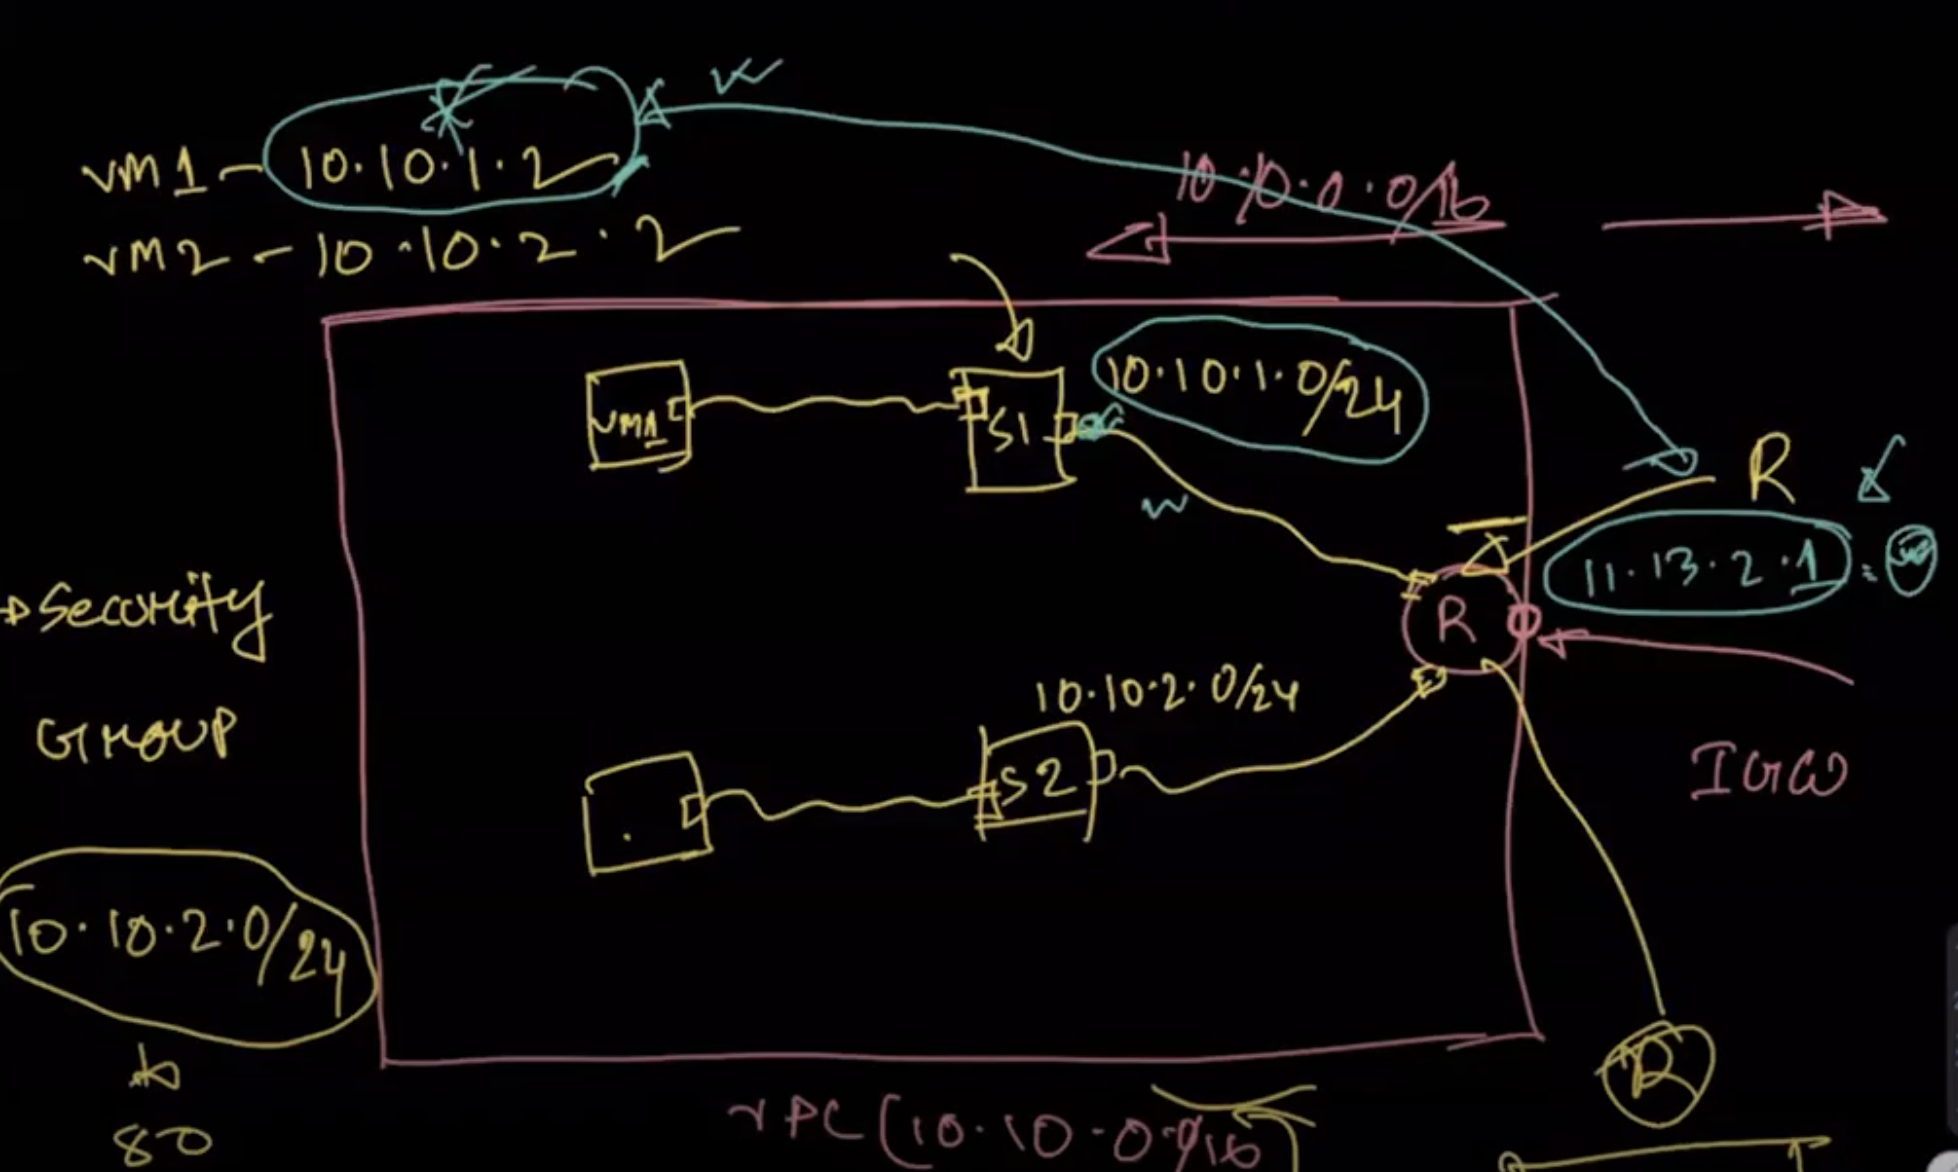 VM1 - 10.10.1.2
VM2 - 10.10.2.2
10.10.0.0/16
VM1
S1
10.10.1.0/24
R
11.13.2.1 =
R
IGW
→ Security
Group
10.10.2.0/24
S2
10.10.2.0/24
80
R
VPC (10.10.0.0/16)